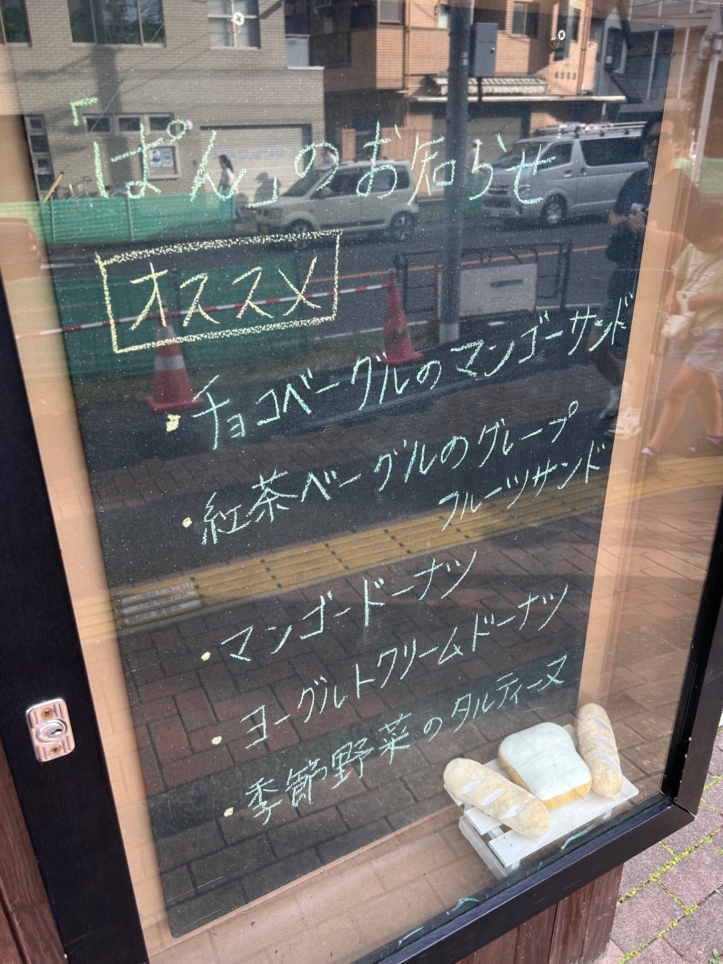 「ぱん」のお知らせ
オススメ
・チョコベーグルのマンゴーサンド
・紅茶ベーグルのグレープ
フルーツサンド
・マンゴードーナツ
・ヨーグルトクリームドーナツ
・季節野菜のタルティーヌ